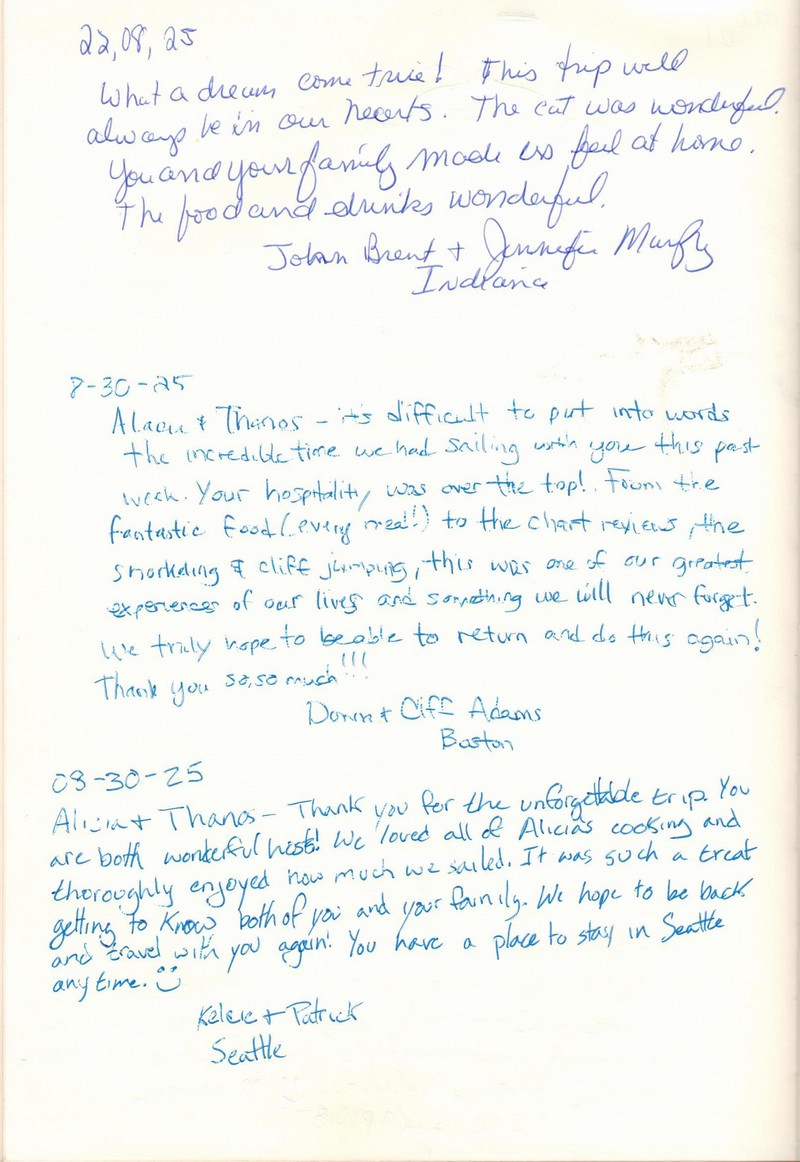 22,08,25
What a dream come true! This trip will
always be in our hearts. The cat was wonderful.
You and your family made us feel at home.
The food and drinks wonderful.
Brent + Jennifer Murphy
Indiana
8-30-25
Alicia & Thanos - it's difficult to put into words
the incredible time we had sailing with you this past
week. Your hospitality was over the top! From the
fantastic food (every meal!) to the chart reviews, the
snorkeling & cliff jumping, this was one of our greatest
experiences of our lives and something we will never forget.
We truly hope to be able to return and do this again!
Thank you so, so much!!!
+ Cliff Adams
Boston
08-30-25
Alicia + Thanos - Thank you for the unforgettable trip. You
are both wonderful hosts! We loved all of Alicia's cooking and
thoroughly enjoyed how much we sailed. It was such a treat
getting to know both of you and your family. We hope to be back
and travel with you again! You have a place to stay in Seattle
anytime. :)
Kelsie + Patrick
Seattle